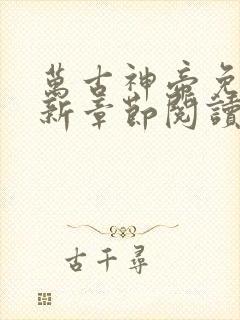 萬古神帝免
新章節閱讀
古千尋